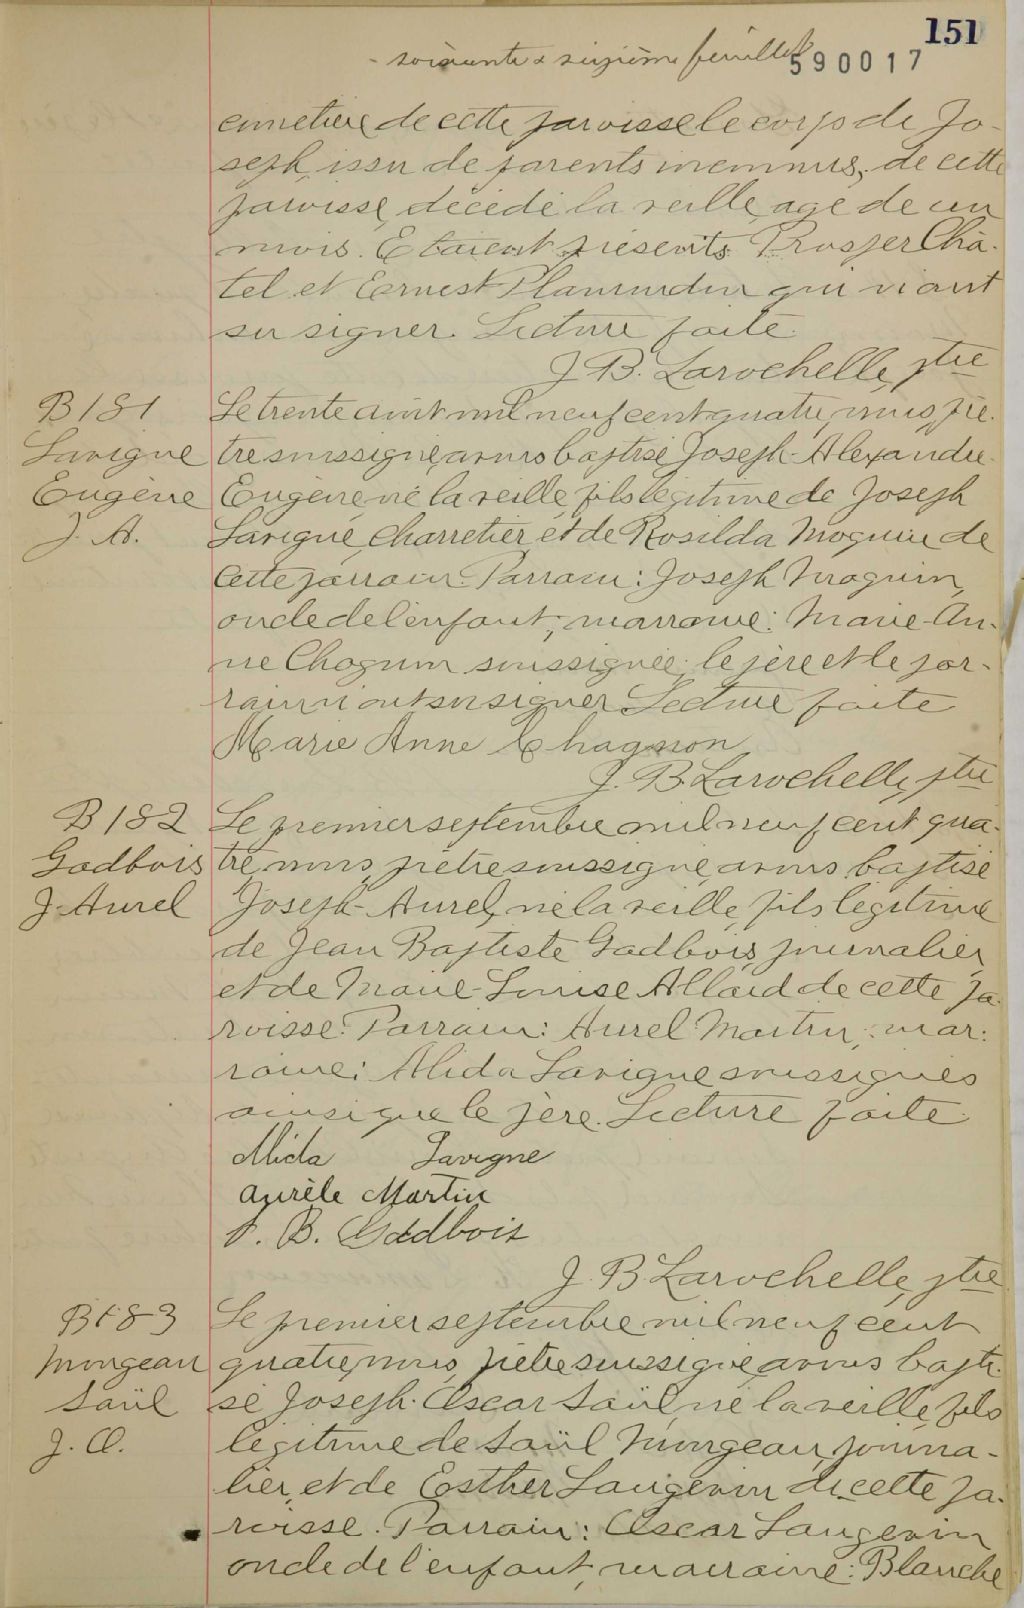 151
soixante & sixième feuillet
590017
cimetière de cette paroisse le corps de Jo-
seph, issu de parents inconnus, de cette
paroisse, décédé la veille, agé de un
mois. Etaient présents Prosper Châ-
tel et Ernest Plamondon qui n'ont
su signer. Lecture faite.
J. B. Larochelle, ptre
B 181
Lavigne
Eugène
J. A.
Le trente août mil neuf cent quatre, nous, prê-
tre soussigné, avons baptisé Joseph-Alexandre-
Eugène né la veille, fils légitime de Joseph
Lavigne, charretier, et de Rosilda Moquin de
cette Parrain: Joseph Moquin,
oncle de l'enfant; marraine: Marie-An-
ne Chagnon soussignée; le père et le par-
rain n'ont su signer. Lecture faite
Marie Anne Chagnon
J. B. Larochelle, ptre
B 182
Gadbois
J-Aurel
Le premier septembre mil neuf cent qua-
tre, nous, prêtre soussigné, avons baptisé
Joseph-Aurel, né la veille, fils légitime
de Jean Baptiste Gadbois, journalier,
et de Marie-Louise Allard de cette pa-
roisse. Parrain: Aurel Martin; mar-
raine: Alida Lavigne soussignés
ainsi que le père. Lecture faite.
Alida Lavigne
Aurèle Martin
J. B. Gadbois
J. B. Larochelle, ptre
B 183
Mongeau
Saül
J. O.
Le premier septembre mil neuf cent
quatre, nous, prêtre soussigné, avons bapti-
sé Joseph-Oscar Saül, né la veille, fils
légitime de Saül Mongeau, journa-
lier, et de Esther Langevin de cette pa-
roisse. Parrain: Oscar Langevin
oncle de l'enfant, marraine: Blanche